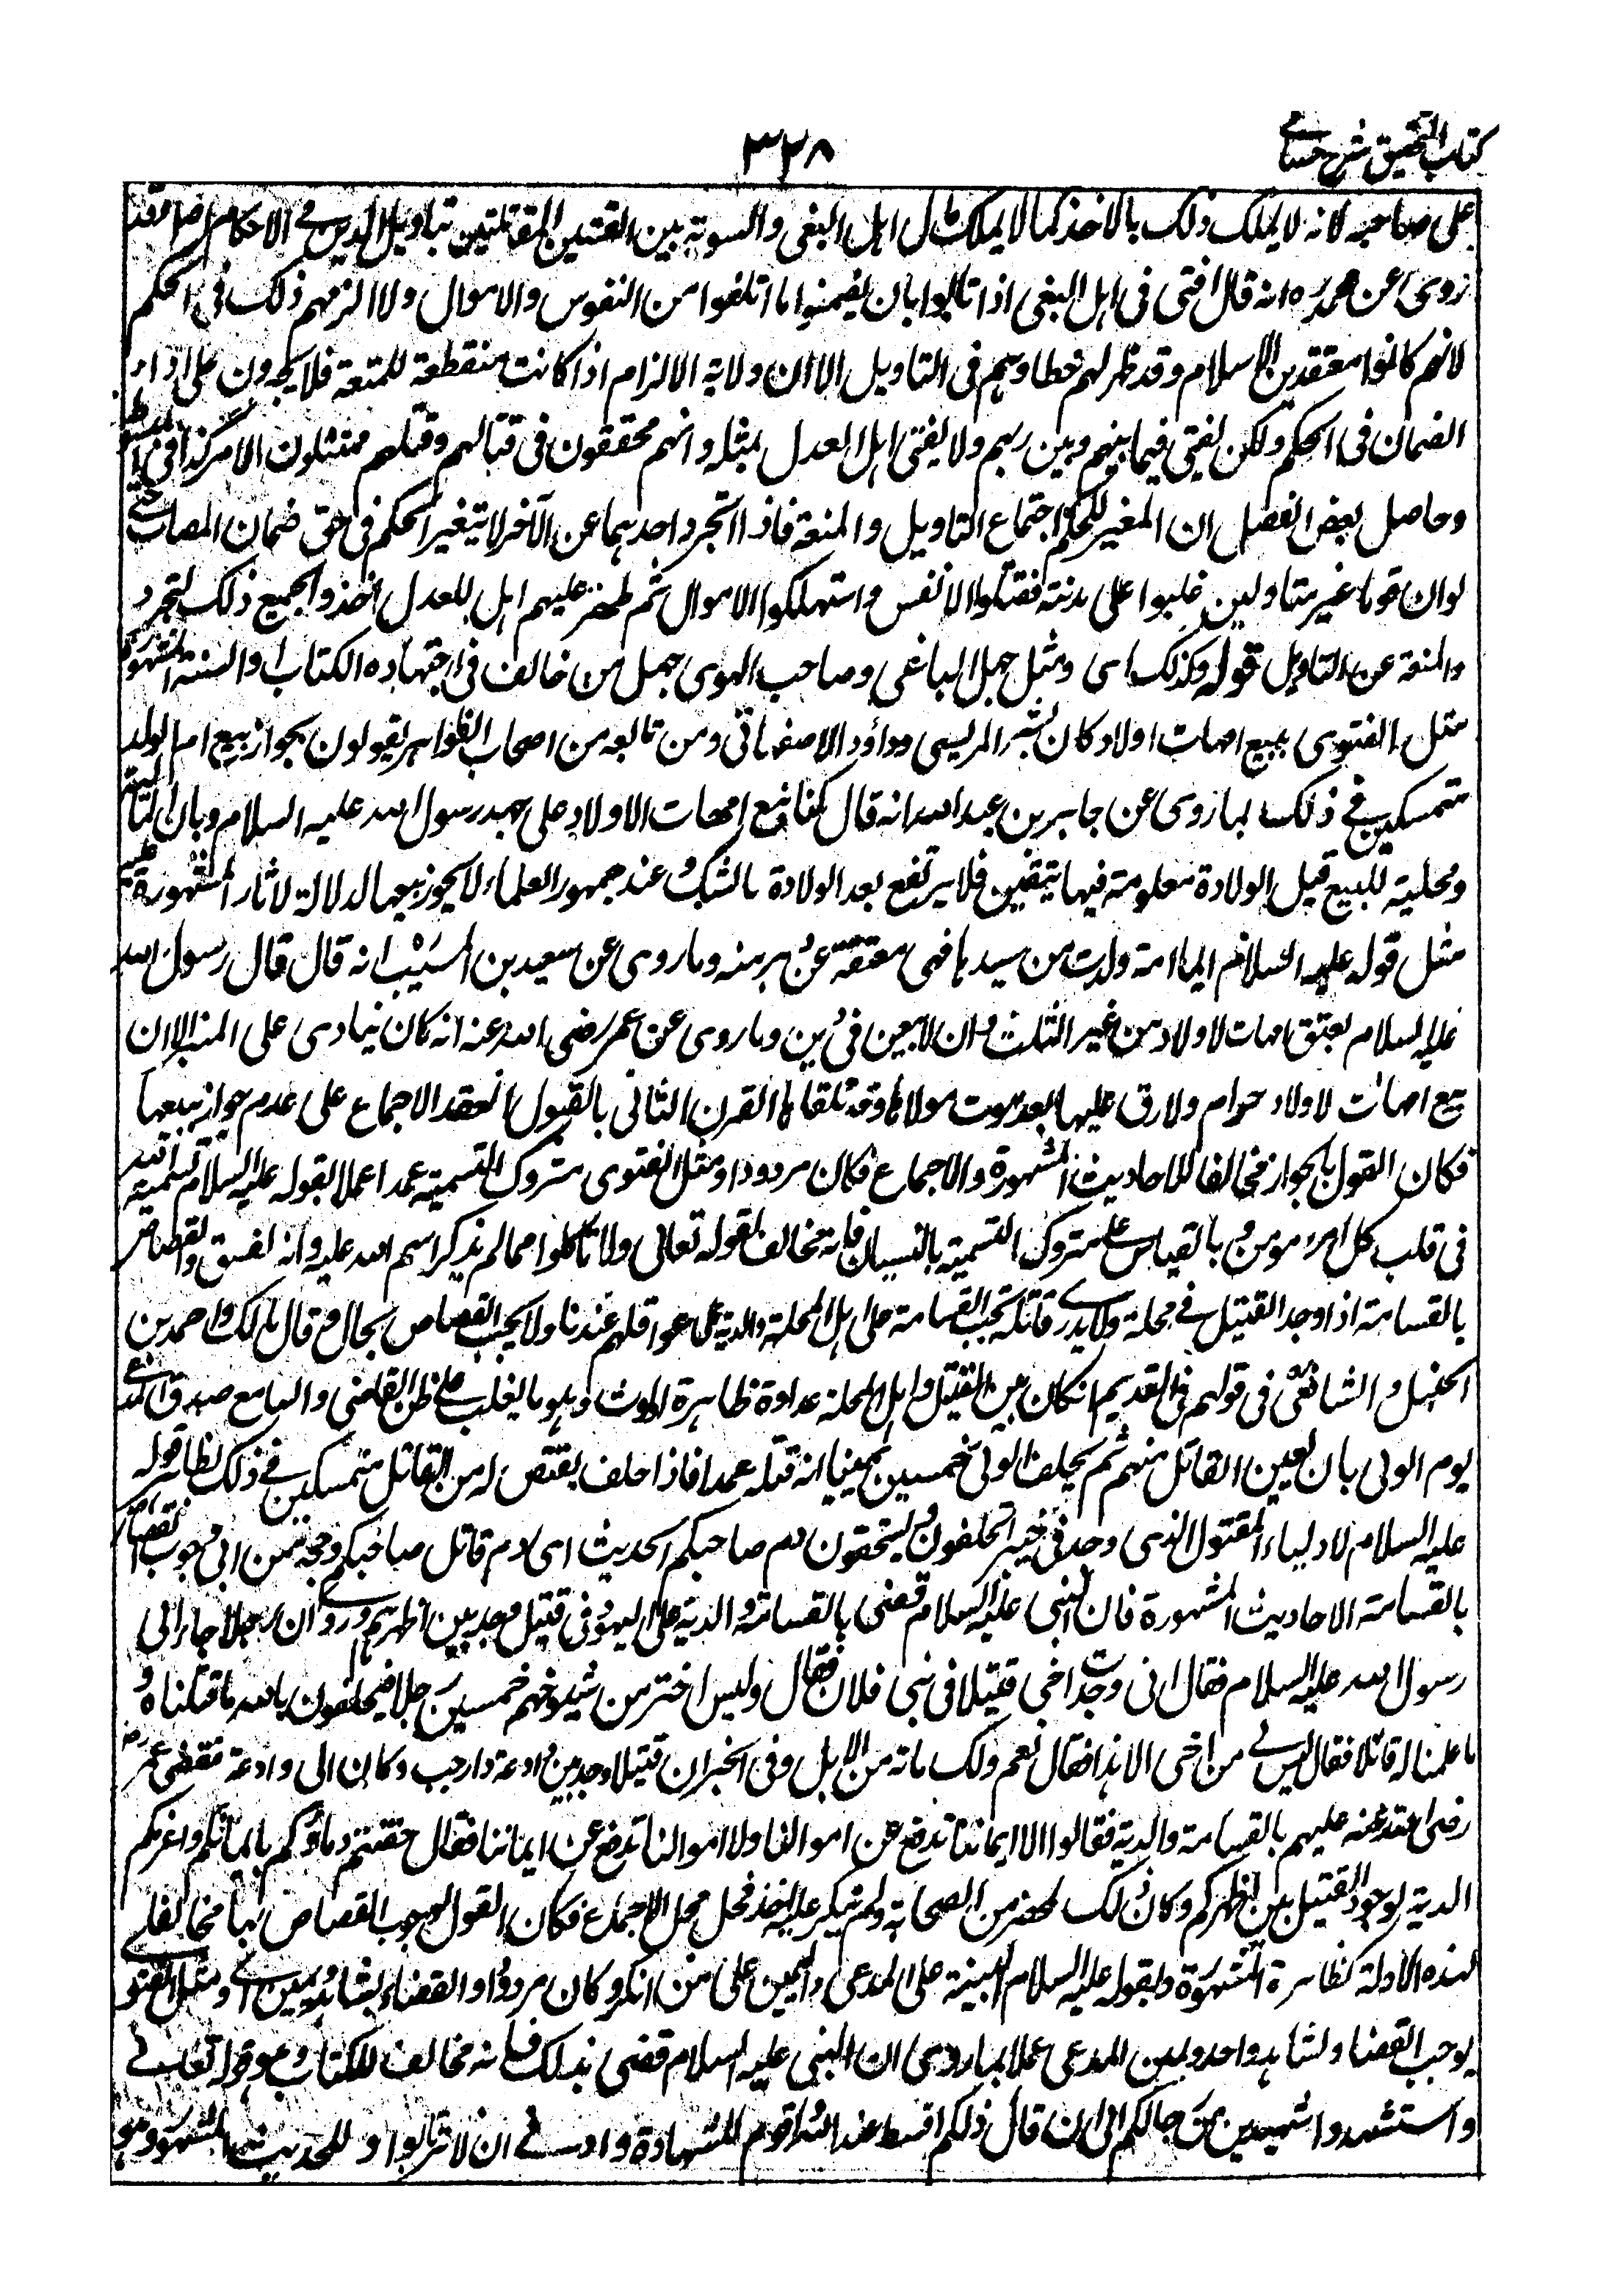 كتاب التحقيق شرح حسامي
٣٢٨
على صاحبه لانه لا يملك ذلك بالاخذ كما لا يملك مال اهل البغي والتسوية بين الفئتين المقاتلتين بتاويل الدين في الاحكام اصل فقد
روى عن محمد ره انه قال افتى في اهل البغي اذا تابوا بان يضمنوا ما اتلفوا من النفوس والاموال ولا الزمهم ذلك في الحكم
لانهم كانوا معتقدين الاسلام وقد ظهر لهم خطاؤهم في التاويل الا ان ولاية الالزام اذا كانت منقطعة للمنعة فلا يجبرون على اداء
الضمان في الحكم ولكن يفتى فيما بينهم وبين ربهم ولا يفتى اهل العدل بمثله وانهم محققون في قتالهم وقتلهم ممتثلون الامر كذا في المبسوط
وحاصل بعض الفصل ان المغير للحكم اجتماع التاويل والمنعة فاذا تجرد احدهما عن الآخر لا يتغير الحكم في حق ضمان المصاب حتى
لو ان قوما غير متاولين غلبوا على مدينة فقتلوا الانفس واستهلكوا الاموال ثم ظهر عليهم اهل للعدل اخذوا بجميع ذلك لتجرد
والمنعة عن التاويل قوله وكذلك اى ومثل جهل الباغي وصاحب الهوى جهل من خالف في اجتهاده الكتاب او السنة المشهورة
مثل الفتوى ببيع امهات اولاد كان بشر المريسي وداؤد الاصفهاني ومن تابعه من اصحاب الظواهر يقولون بجواز بيع ام الولد
متمسكين في ذلك بما روى عن جابر بن عبد الله انه قال كنا نبيع امهات الاولاد على عهد رسول الله عليه السلام وبان المالية
ومحلية للبيع قبل الولادة معلومة فيها بيقين فلا يرتفع بعد الولادة بالشك وعند جمهور العلماء لا يجوز بيعها لدلالة لاثار المشهورة عليه
مثل قوله عليه السلام ايما امة ولدت من سيدها فهي معتقة عن دبر منه وما روى عن سعيد بن المسيب انه قال قال رسول الله
عليه السلام بعتق امهات لاولاد من غير الثلث وان لا يبعن في دين وما روى عن عمر رضي الله عنه انه كان ينادى على المنبر الا ان
بيع امهات لاولاد حرام ولا رق عليها بعد موت مولاها وقد تلقاها القرن الثاني بالقبول انعقد الاجماع على عدم جواز بيعها
فكان القول بالجواز مخالفا للاحاديث المشهورة والاجماع فكان مردودا ومثل الفتوى متروك التسمية عمدا عملا بقوله عليه السلام تسمية الله
في قلب كل امرء مومن وبالقياس على متروك التسمية بالنسيان فانه مخالف لقوله تعالى ولا تاكلوا مما لم يذكر اسم الله عليه وانه لفسق والقصاص
بالقسامة اذا وجد القتيل في محلة ولا يدرى قاتله تجب القسامة على اهل المحلة والدية على عواقلهم عندنا ولا يجب القصاص بحال وقال مالك واحمد بن
الحنبل والشافعي في قولهم في القديم ان كان بين القتيل واهل المحلة عداوة ظاهرة لوث وهو ما يغلب على ظن القاضي والسامع صدق المدعي
يوم الولى بان يعين القاتل منهم ثم يحلف الولى خمسين يمينا انه قتله عمدا فاذا حلف يقتص له من القاتل متمسكين في ذلك بظاهر قوله
عليه السلام لاولياء المقتول الذى وجد في خيبر اتحلفون وتستحقون دم صاحبكم الحديث اى دم قاتل صاحبكم وحجة من ابى وجوب القصاص
بالقسامة الاحاديث المشهورة فان النبي عليه السلام قضى بالقسامة والدية على اليهود في قتيل وجد بين اظهرهم وروى ان رجلا جاء الى
رسول الله عليه السلام فقال انى وجدت اخى قتيلا في بنى فلان فقال وليس اختر من شيوخهم خمسين رجلا فيحلفون بالله ما قتلناه و
ما علمنا له قاتلا فقال ليس لى من اخى الا هذا فقال نعم ولك مائة من الابل وفي الخبر ان قتيلا وجد بين وادعة وارحب وكان الى وادعة فقضى عمر
رضى الله عنه عليهم بالقسامة والدية فقالوا لا ايماننا تدفع عن اموالنا ولا اموالنا تدفع عن ايماننا فقال حقنتم دماؤكم بايمانكم واغرمكم
الدية لوجود القتيل بين اظهركم وكان ذلك بمحضر من الصحابة ولم ينكر عليه احد فحل محل الاجماع فكان القول بوجوب القصاص بها مخالفا
لهذه الادلة الظاهرة المشهورة ولقوله عليه السلام البينة على المدعى واليمين على من انكر وكان مردودا والقضاء بشاهد ويمين اى ومثل الفتوى
بوجب القضاء بشاهد واحد ويمين المدعى عملا بما روى ان النبي عليه السلام قضى بذلك فانه مخالف للكتاب وهو قوله تعالى
واستشهدوا شهيدين من رجالكم الى ان قال ذلكم اقسط عند الله واقوم للشهادة وادنى ان لا ترتابوا وللحديث المشهور وهو